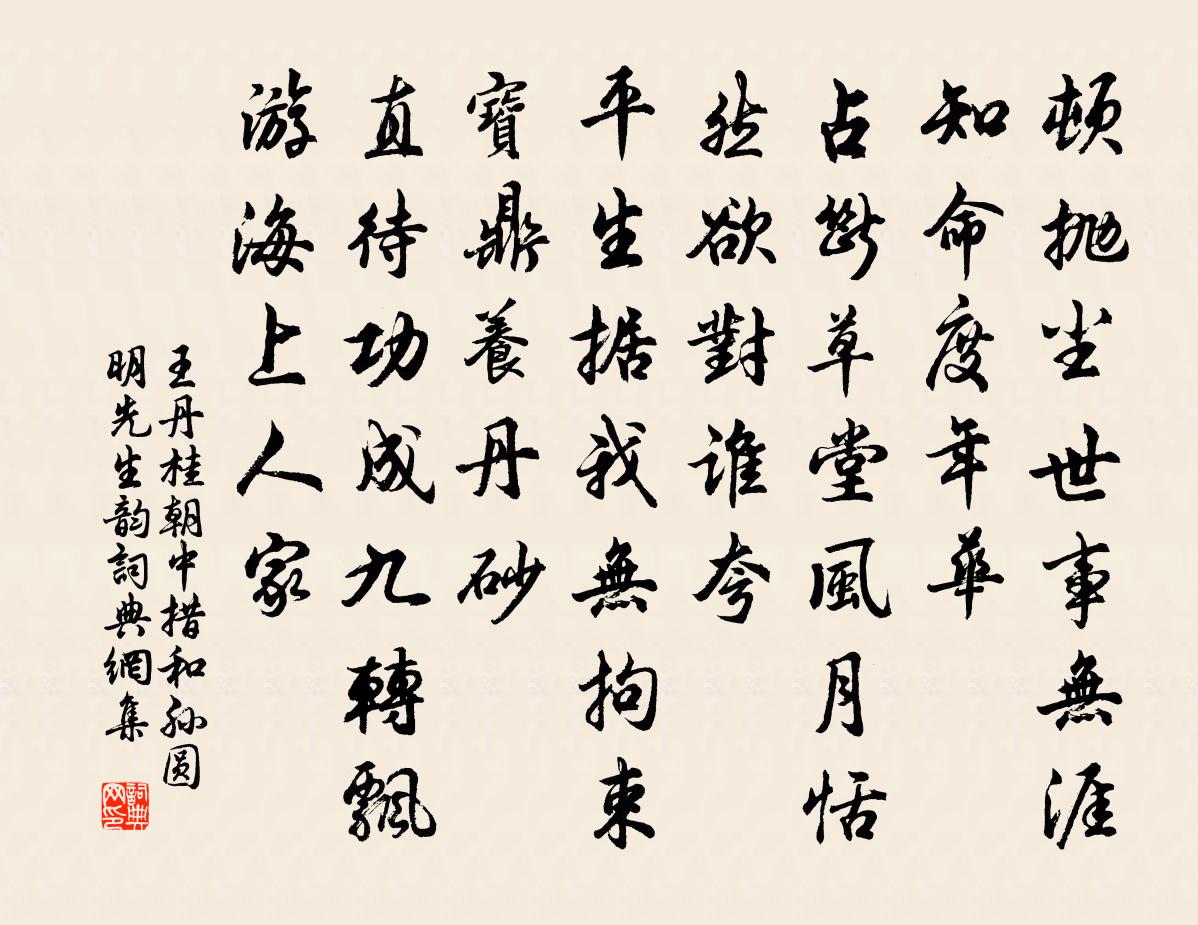 頓拋尘世事無涯
知命度年華
占斷草堂風月恬
然欲對誰夸
平生据我無拘束
寶鼎養丹砂
直待功成九轉飄
游海上人家
王丹桂朝中措和孙圆
明先生韵詞典網集
詞典网印